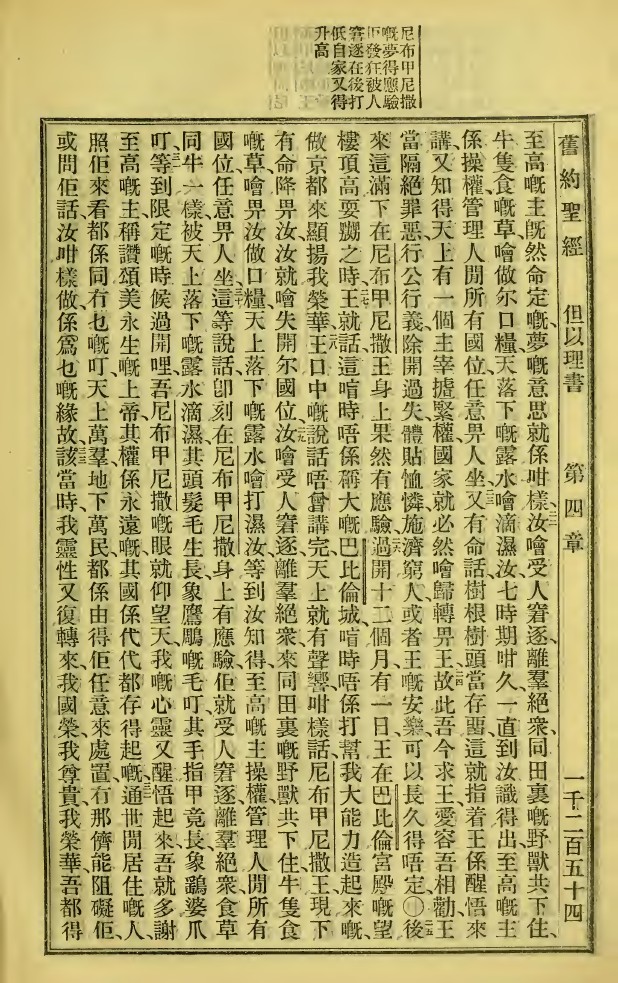 尼布甲尼撒
嘅夢得應驗
佢發狂被人
窘逐在後打
低自家又得
升高
舊約聖經 但以理書 第四章 一千二百五十四
至高嘅主既然命定嘅、夢嘅意思就係咁樣、三二汝噲受人窘逐、離羣絕衆、同田裏嘅野獸共下住、
牛隻食嘅草、噲做尔口糧、天落下嘅露水噲滴濕汝、七時期咁久、一直到汝識得出至高嘅主
係操權、管理人間所有國位、任意畀人坐、三三又有命話、樹根樹頭當存畱、這就指着王係醒悟來
講、又知得天上有一個主宰㨿緊權、國家就必然噲歸轉畀王、三四故此吾今求王愛容吾相勸、王
當隔絕罪惡、行公行義、除開過失、體貼恤憐施濟窮人、或者王嘅安樂可以長久得唔定、〇三五後
來這滿下在尼布甲尼撒王身上果然有應驗、三六過開十二個月、有一日王在巴比倫宮殿嘅望
樓頂高耍嬲之時、三七王就話、這喑時唔係稱大嘅巴比倫城、喑時唔係打幫我大能力造起來嘅、
做京都來顯揚我榮華、三八王口中嘅說話唔曾講完、天上就有聲響咁樣話、尼布甲尼撒王、現下
有命降畀汝、汝就噲失開尔國位、三九汝噲受人窘逐、離羣絕衆、來同田裏嘅野獸共下住、牛隻食
嘅草、噲畀汝做口糧、天上落下嘅露水噲打濕汝、等到汝知得至高嘅主操權、管理人間所有
國位、任意畀人坐、三十這等說話卽刻在尼布甲尼撒身上有應驗、佢就受人窘逐、離羣絕衆、食草
同牛一樣、被天上落下嘅露水滴濕、其頭髮毛生長、象鷹鵰嘅毛叮、其手指甲竟長、象鷂婆爪
叮、三一等到限定嘅時候過開哩、吾尼布甲尼撒嘅眼就仰望天、我嘅心靈又醒悟起來、吾就多謝
至高嘅主、稱讚頌美永生嘅上帝、其權係永遠嘅、其國係代代都存得起嘅、三二通世間居住嘅人、
照佢來看都係同冇乜嘅叮、天上萬羣、地下萬民、都係由得佢任意來處置、冇那儕能阻礙佢、
或問佢話、汝咁樣做係爲乜嘅緣故、三三該當時我靈性又復轉來、我國榮、我尊貴、我榮華、吾都得